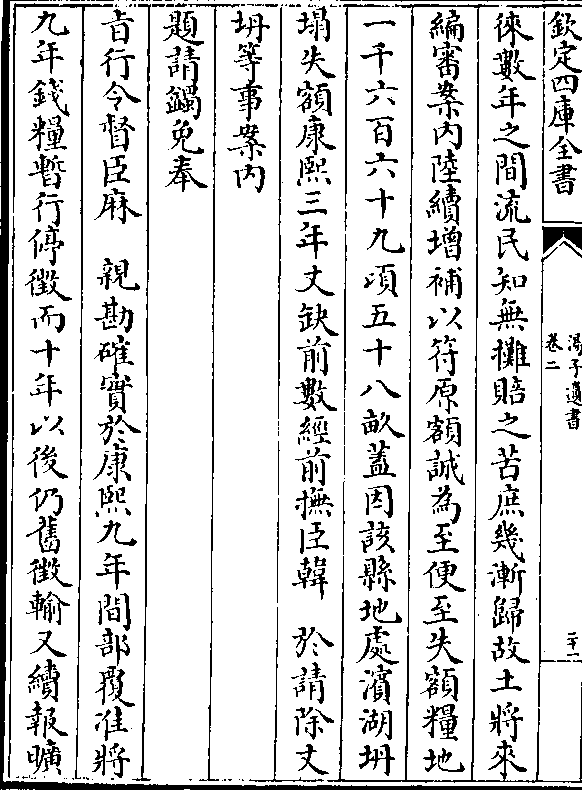 欽定四庫全書
湯子遺書
卷二
二十一
徠數年之間流民知無攤賠之苦庶幾漸歸故土將來
編審案内陸續增補以符原額誠為至便至失額糧地
一千六百六十九頃五十八畝蓋因該縣地處濱湖坍
塌失額康熙三年丈缺前數經前撫臣韓　於請除丈
坍等事案内
題請蠲免奉
㫖行令督臣麻　親勘確實於康熙九年間部覆准將
九年錢糧暫行停徵而十年以後仍舊徵輸又續報曠